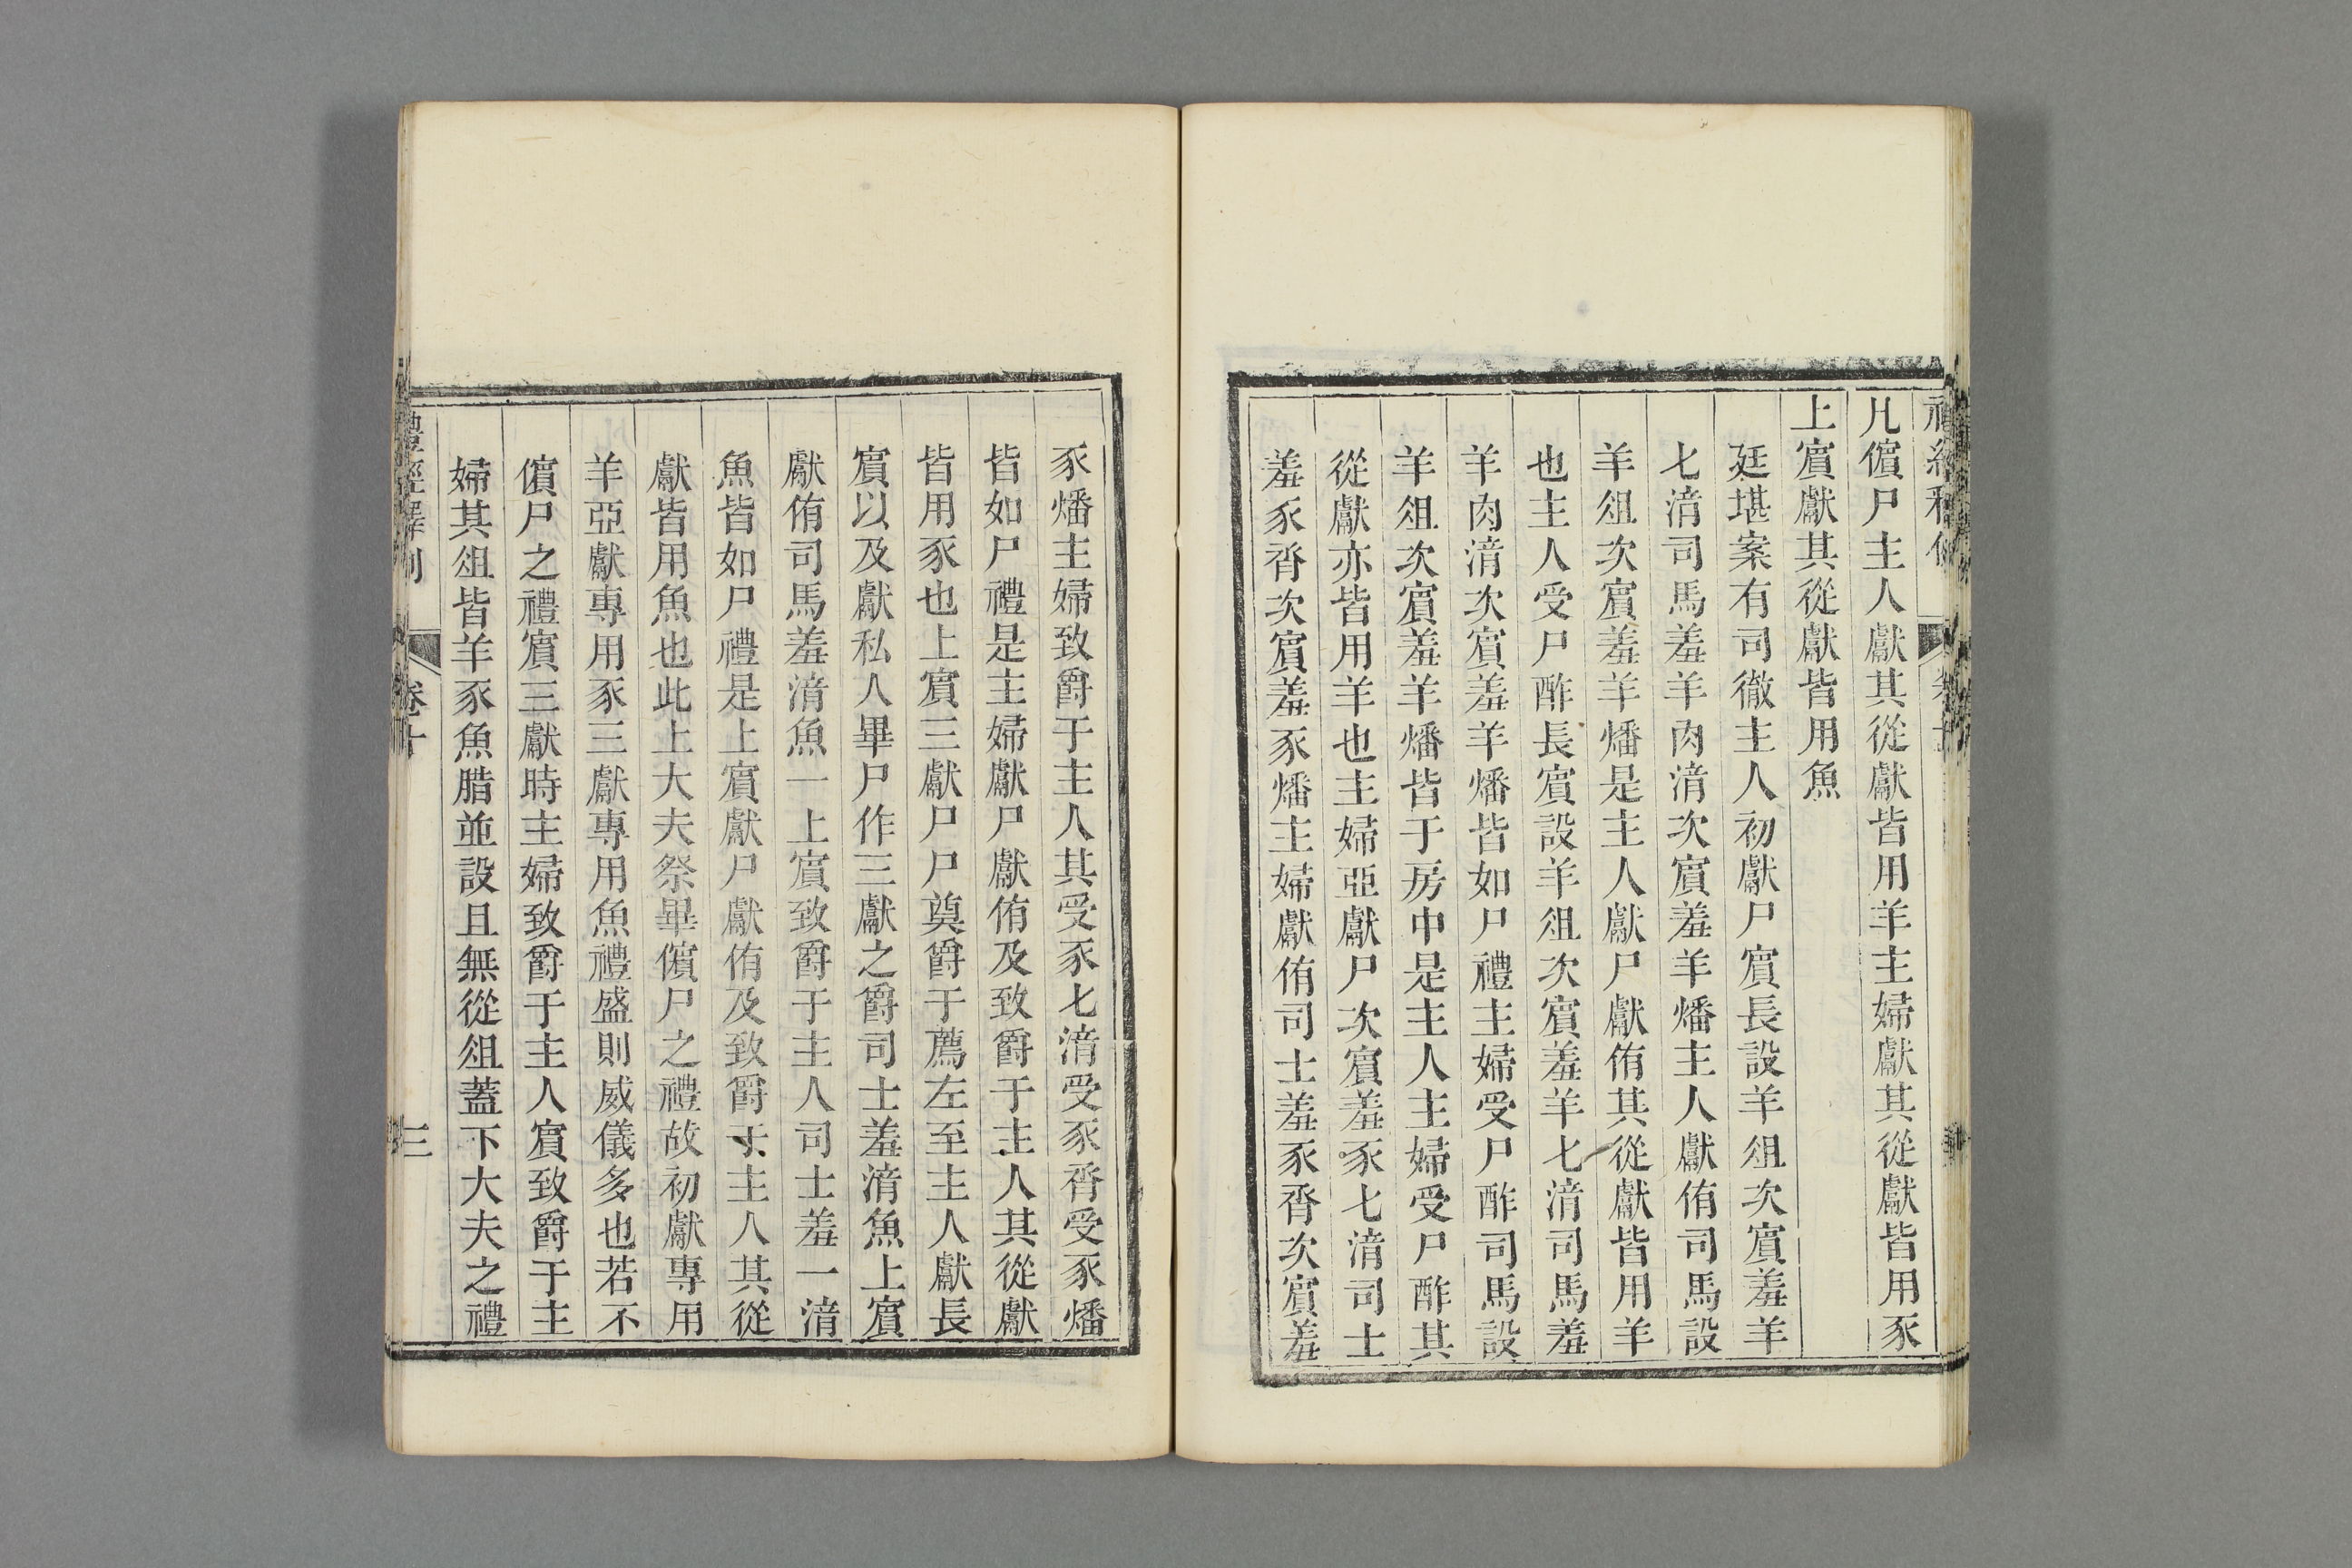 凡儐尸主人獻其從獻皆用羊主婦獻其從獻皆用豕
上賓獻其從獻皆用魚
廷堪案有司徹主人初獻尸賓長設羊俎次賓羞羊
匕湆司馬羞羊肉湆次賓羞羊燔主人獻侑司馬設
羊俎次賓羞羊燔是主人獻尸獻侑其從獻皆用羊
也主人受尸酢長賓設羊俎次賓羞羊匕湆司馬羞
羊肉湆次賓羞羊燔皆如尸禮主婦受尸酢司馬設
羊俎次賓羞羊燔皆于房中是主人主婦受尸酢其
從獻亦皆用羊也主婦亞獻尸次賓羞豕匕湆司士
羞豕脀次賓羞豕燔主婦獻侑司士羞豕脀次賓羞
豕燔主婦致爵于主人其受豕匕湆受豕脀受豕燔
皆如尸禮是主婦獻尸獻侑及致爵于主人其從獻
皆用豕也上賓三獻尸尸奠爵于薦左至主人獻長
賓以及獻私人畢尸作三獻之爵司士羞湆魚上賓
獻侑司馬羞湆魚一上賓致爵于主人司士羞一湆
魚皆如尸禮是上賓獻尸獻侑及致爵于主人其從
獻皆用魚也此上大夫祭畢儐尸之禮故初獻專用
羊亞獻專用豕三獻專用魚禮盛則威儀多也若不
儐尸之禮賓三獻時主婦致爵于主人賓致爵于主
婦其俎皆羊豕魚腊並設且無從俎蓋下大夫之禮
禮經釋例
卷十
三